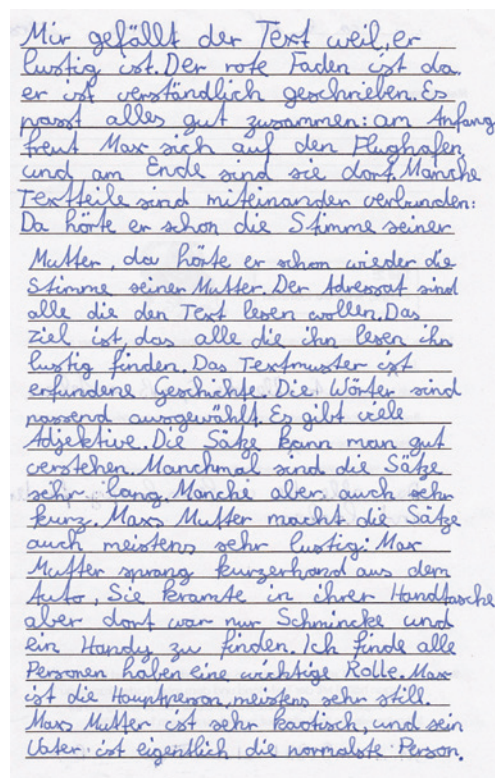 Mir gefällt der Text weil, er
lustig ist. Der rote Faden ist da.
er ist verständlich geschrieben. Es
passt alles gut zusammen: am Anfang
freut Max sich auf den Flughafen
und am Ende sind sie dort. Manche
Textteile sind miteinander verbunden:
Da hörte er schon die Stimme seiner
Mutter, da hörte er schon wieder die
Stimme seiner Mutter. Der Adressat sind
alle die den Text lesen wollen. Das
Ziel ist, das alle die ihn lesen ihn
lustig finden. Das Textmuster ist
erfundene Geschichte. Die Wörter sind
passend ausgewählt. Es gibt viele
Adjektive. Die Sätze kann man gut
verstehen. Manchmal sind die Sätze
sehr lang. Manche aber auch sehr
kurz. Maxs Mutter macht die Sätze
auch meistens sehr lustig: Max
Mutter sprang kurzerhand aus dem
Auto, Sie kramte in ihrer Handtasche
aber dort war nur Schmincke und
ein Handy zu finden. Ich finde alle
Personen haben eine wichtige Rolle. Max
ist die Hauptperson, meistens sehr still.
Maxs Mutter ist sehr kaotisch, und sein
Vater ist eigentlich die normalste Person.